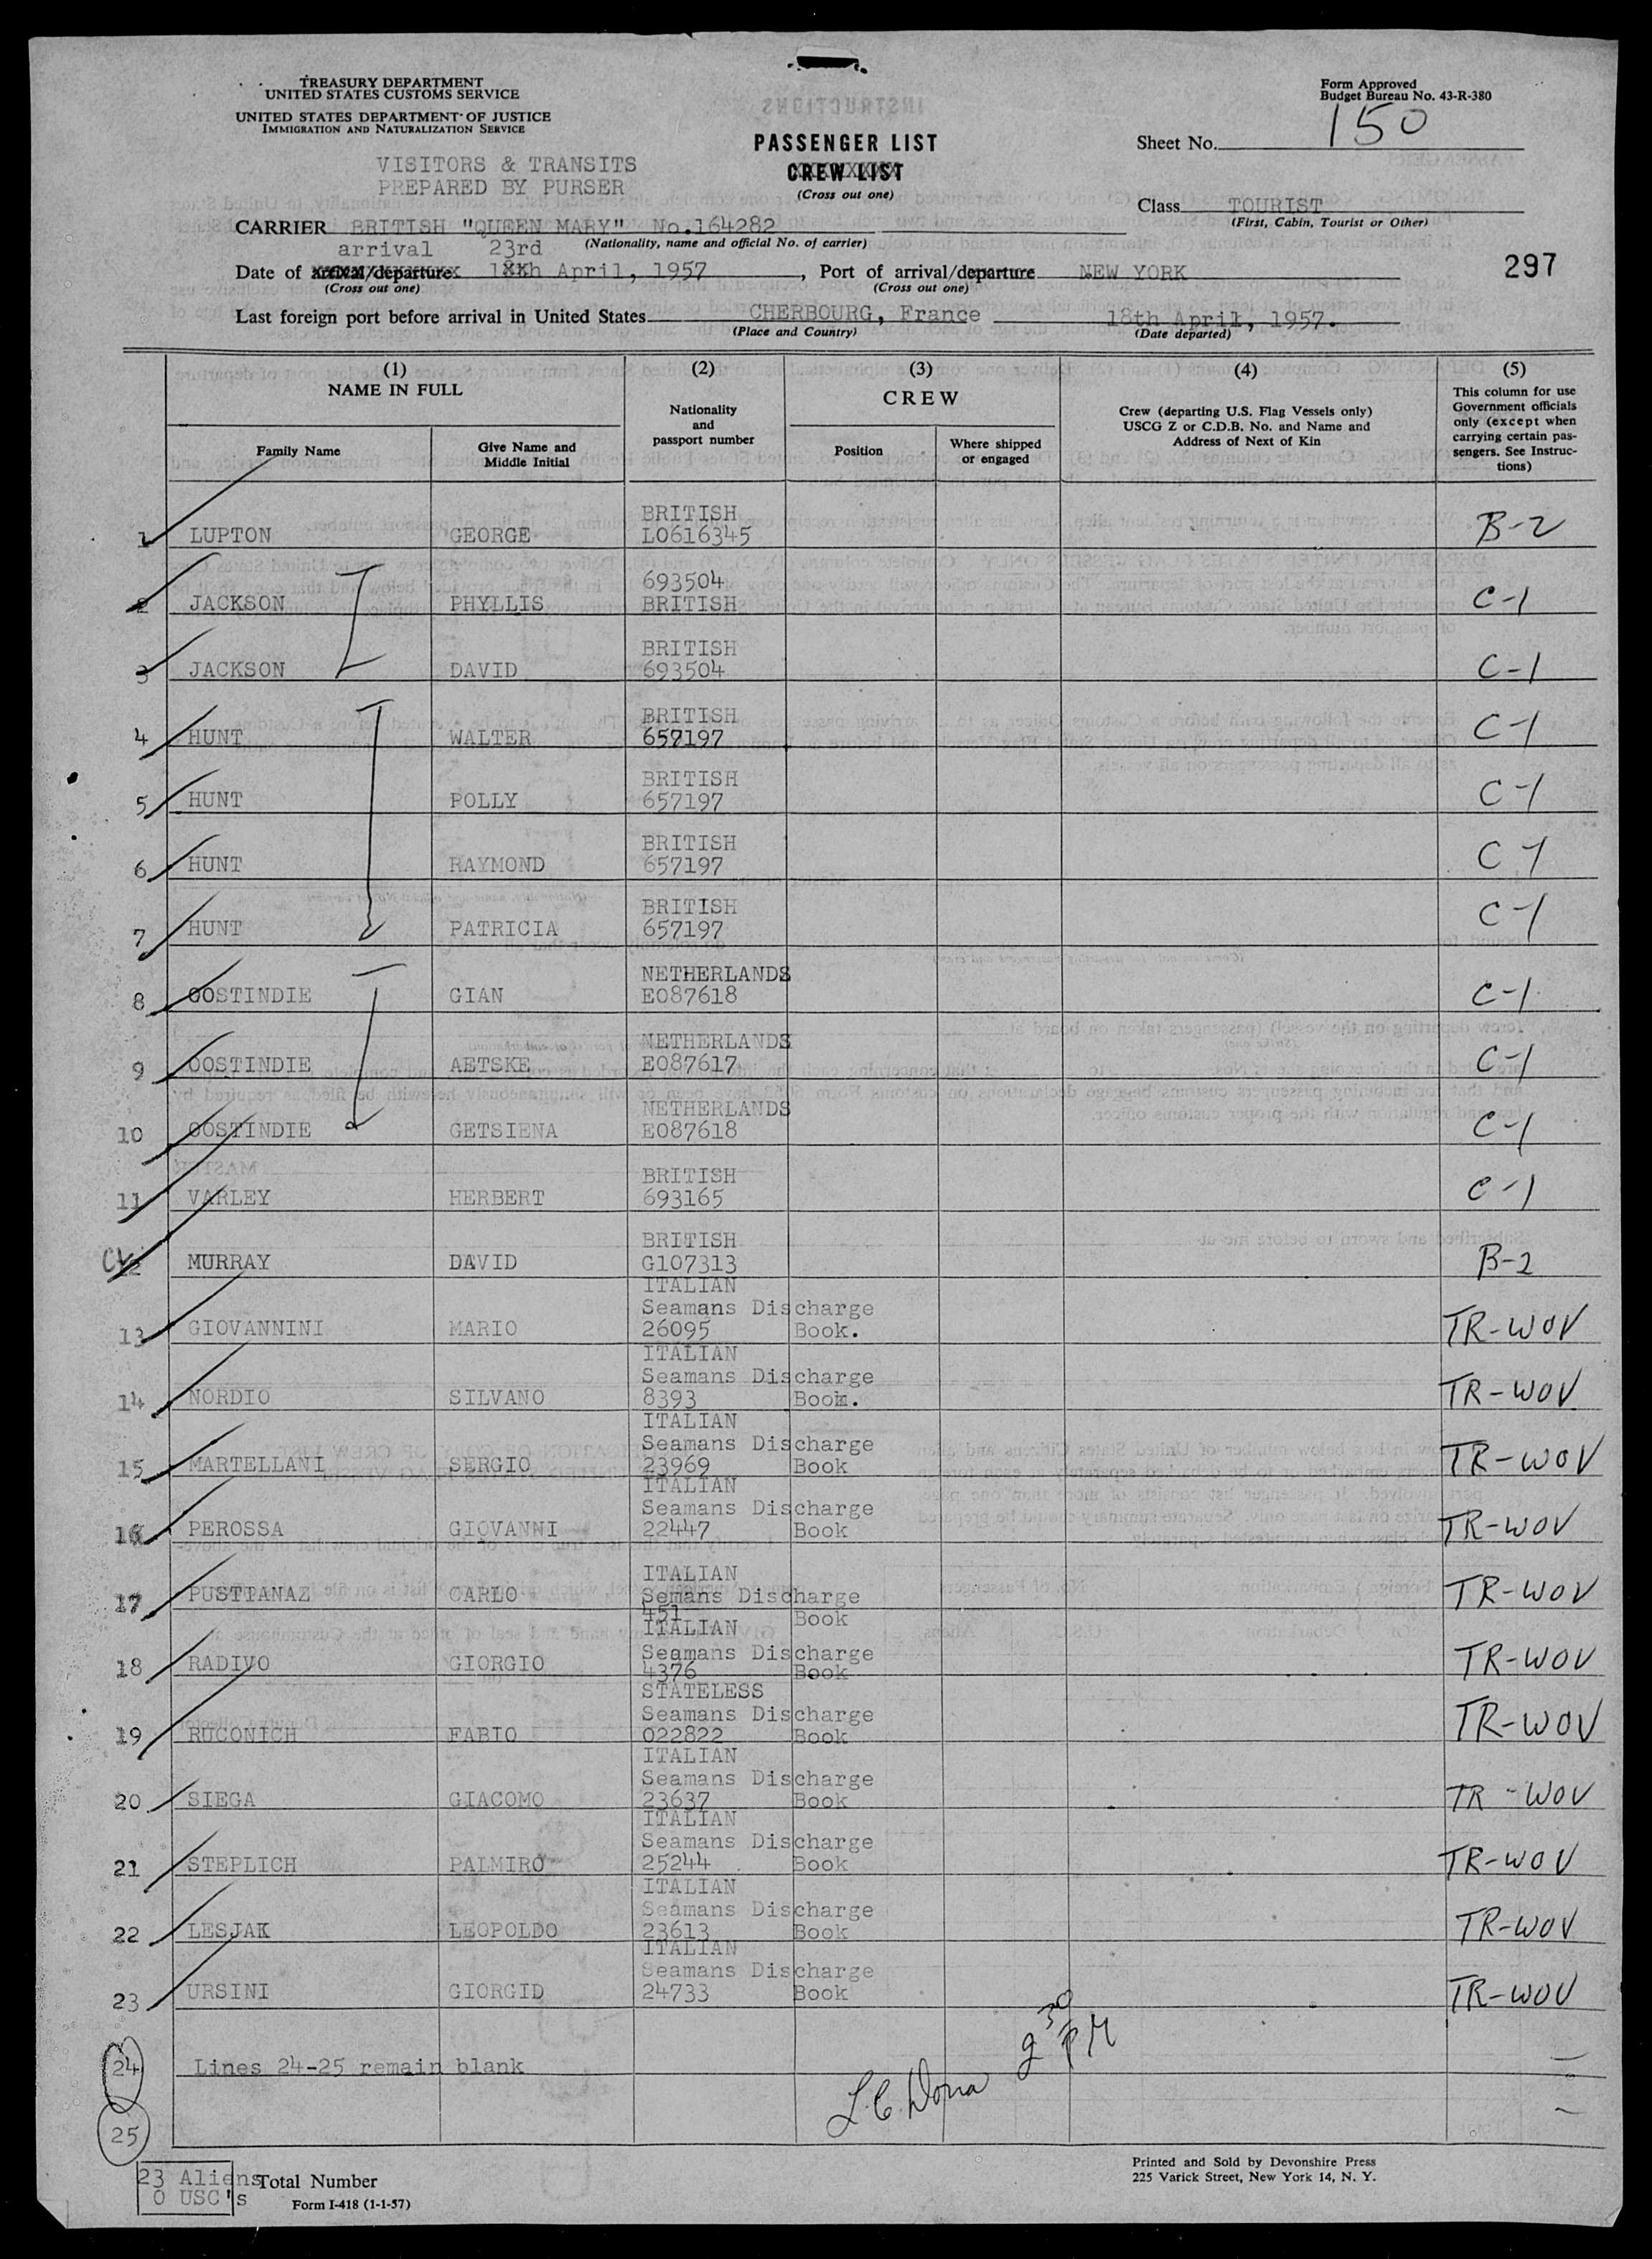 TREASURY DEPARTMENT
UNITED STATES CUSTOMS SERVICE
UNITED STATES DEPARTMENT OF JUSTICE
IMMIGRATION AND NATURALIZATION SERVICE
VISITORS & TRANSITS
PREPARED BY PURSER
PASSENGER LIST
CREW LIST
(Cross out one)
Form Approved
Budget Bureau No. 43-R-380
Sheet No. 150
Class TOURIST
(First, Cabin, Tourist or Other)
CARRIER BRITISH "QUEEN MARY" No.164282
(Nationality, name and official No. of carrier)
arrival 23rd
Date of arrival/departure 18th April, 1957, Port of arrival/departure NEW YORK
(Cross out one) (Cross out one)
297
Last foreign port before arrival in United States CHERBOURG, France 18th April, 1957.
(Place and Country) (Date departed)
(1) NAME IN FULL
Family Name
Give Name and Middle Initial
(2) Nationality and passport number
(3) CREW
Position
Where shipped or engaged
(4) Crew (departing U.S. Flag Vessels only) USCG Z or C.D.B. No. and Name and Address of Next of Kin
(5) This column for use Government officials only (except when carrying certain passengers. See Instructions)
1 LUPTON GEORGE BRITISH L0616345 B-2
2 JACKSON PHYLLIS 693504 BRITISH C-1
3 JACKSON DAVID BRITISH 693504 C-1
4 HUNT WALTER BRITISH 657197 C-1
5 HUNT POLLY BRITISH 657197 C-1
6 HUNT RAYMOND BRITISH 657197 C-1
7 HUNT PATRICIA BRITISH 657197 C-1
8 OOSTINDIE GIAN NETHERLANDS E087618 C-1
9 OOSTINDIE AETSKE NETHERLANDS E087617 C-1
10 OOSTINDIE GETSIENA NETHERLANDS E087618 C-1
11 VARLEY HERBERT BRITISH 693165 C-1
12 MURRAY DAVID BRITISH G107313 B-2
13 GIOVANNINI MARIO ITALIAN Seamans Discharge 26095 Book. TR-WOV
14 NORDIO SILVANO ITALIAN Seamans Discharge 8393 Book. TR-WOV
15 MARTELLANI SERGIO ITALIAN Seamans Discharge 23969 Book TR-WOV
16 PEROSSA GIOVANNI ITALIAN Seamans Discharge 22447 Book TR-WOV
17 PUSTTANAZ CARLO ITALIAN Semans Discharge 451 Book TR-WOV
18 RADIVO GIORGIO ITALIAN Seamans Discharge 4376 Book TR-WOV
19 RUCONICH FABIO STATELESS Seamans Discharge 022822 Book TR-WOV
20 SIEGA GIACOMO ITALIAN Seamans Discharge 23637 Book TR-WOV
21 STEPLICH PALMIRO ITALIAN Seamans Discharge 25244 Book TR-WOV
22 LESJAK LEOPOLDO ITALIAN Seamans Discharge 23613 Book TR-WOV
23 URSINI GIORGID ITALIAN Seamans Discharge 24733 Book TR-WOV
24 Lines 24-25 remain blank
25
2 30 PM
23 Aliens
0 USC's
Total Number
Form I-418 (1-1-57)
Printed and Sold by Devonshire Press
225 Varick Street, New York 14, N. Y.